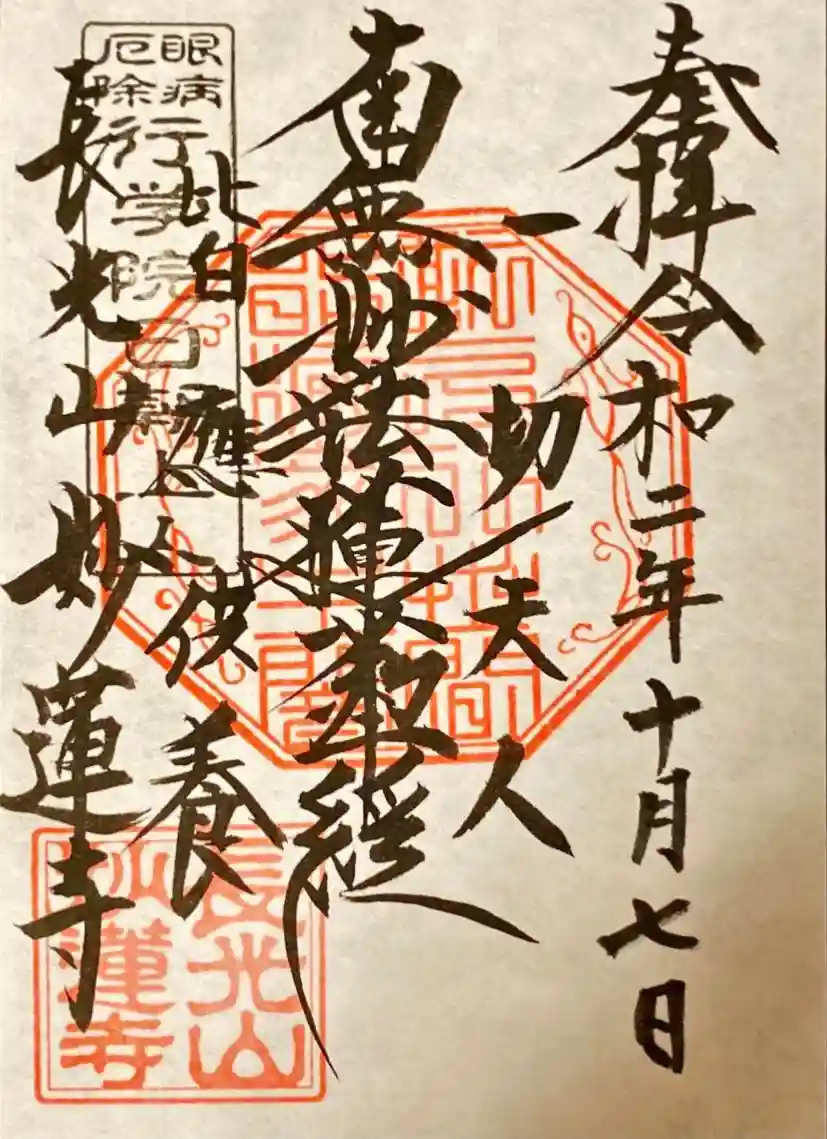 奉拝 令和二年十月七日
一切天人
南無妙法蓮華経
皆應供養
長光山妙蓮寺
眼病
厄除
行学院日朝上人
長光山
妙蓮寺